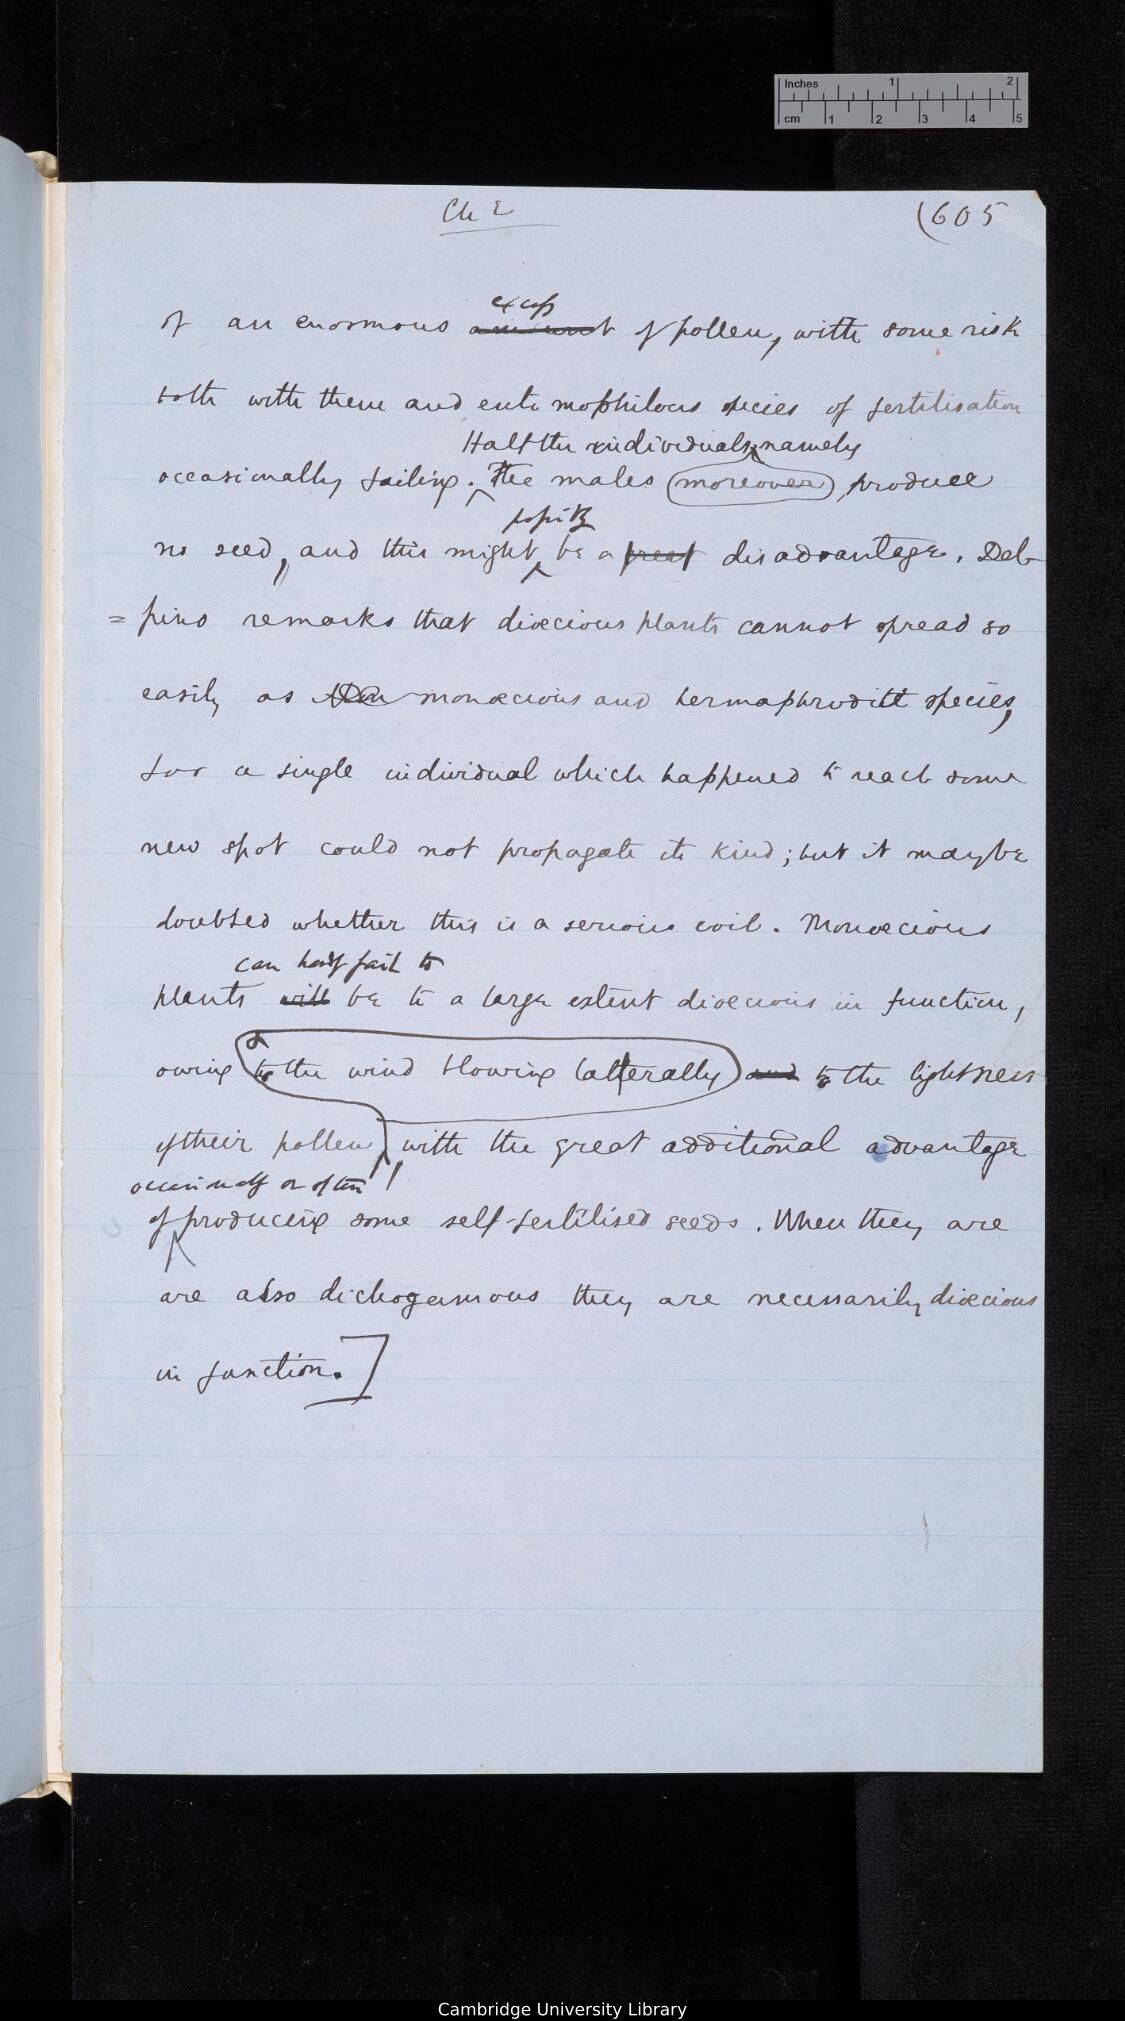 Inches 1 2
cm 1 2 3 4 5
Ch 2
(605
excess
of an enormous amount of pollen, with some risk
both with them and entomophilous species of fertilisation
Half the individuals, namely
occasionally failing. The males moreover, produce
possibly
no seed, and this might be a great disadvantage. Del-
= pino remarks that diœcious plants cannot spread so
easily as monœcious and hermaphrodite species,
for a single individual which happened to reach some
new spot could not propagate its kind; but it may be
doubted whether this is a serious evil. Monœcious
can hardly fail to
plants will be to a large extent diœcious in function,
&
owing to the wind blowing laterally and to the lightness
of their pollen, with the great additional advantage
occasionally or often
of producing some self-fertilised seeds. When they are
are also dichogamous they are necessarily diœcious
in function.]
Cambridge University Library